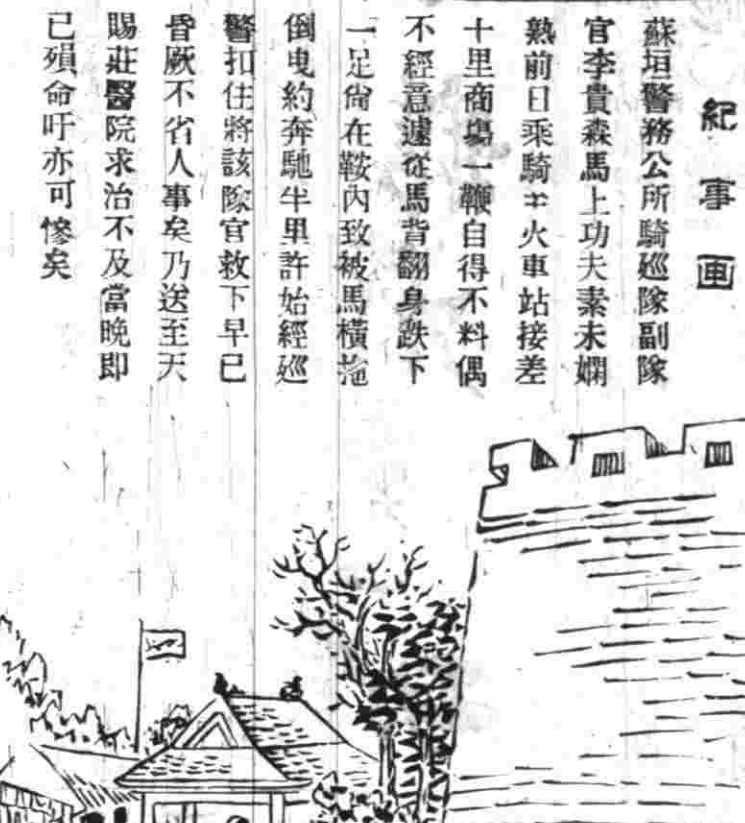 紀事画
蘇垣警務公所騎巡隊副隊
官李貴森馬上功夫素未嫻
熟前日乘騎至火車站接差
十里商塲一鞭自得不料偶
不經意遽從馬背翻身跌下
一足尙在鞍內致被馬橫拖
倒曳約奔馳半里許始經巡
警扣住將該隊官救下早已
昏厥不省人事矣乃送至天
賜莊醫院求治不及當晚即
已殞命吁亦可慘矣